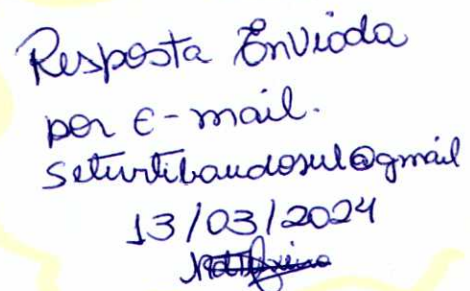 Resposta Enviada
por e-mail.
seturtibaudosul@gmail
13/03/2024